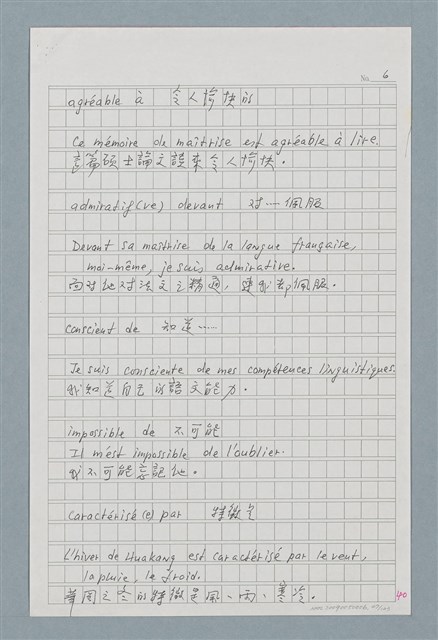 No. 6
agréable à 令人愉快的
Ce mémoire de maîtrise est agréable à lire.
這篇碩士論文讀來令人愉快。
admiratif(ve) devant 対……佩服
Devant sa maîtrise de la langue française,
moi-même, je suis admirative.
面対他対法文之精通，連我都佩服。
conscient de 知道……
Je suis consciente de mes compétences linguistiques.
我知道自己的語文能力。
impossible de 不可能
Il m'est impossible de l'oublier.
我不可能忘記他。
Caractérisé(e) par 特徵是
L'hiver de Huakang est caractérisé par le vent,
la pluie, le froid.
華岡之冬的特徵是風、雨、寒冷。
40